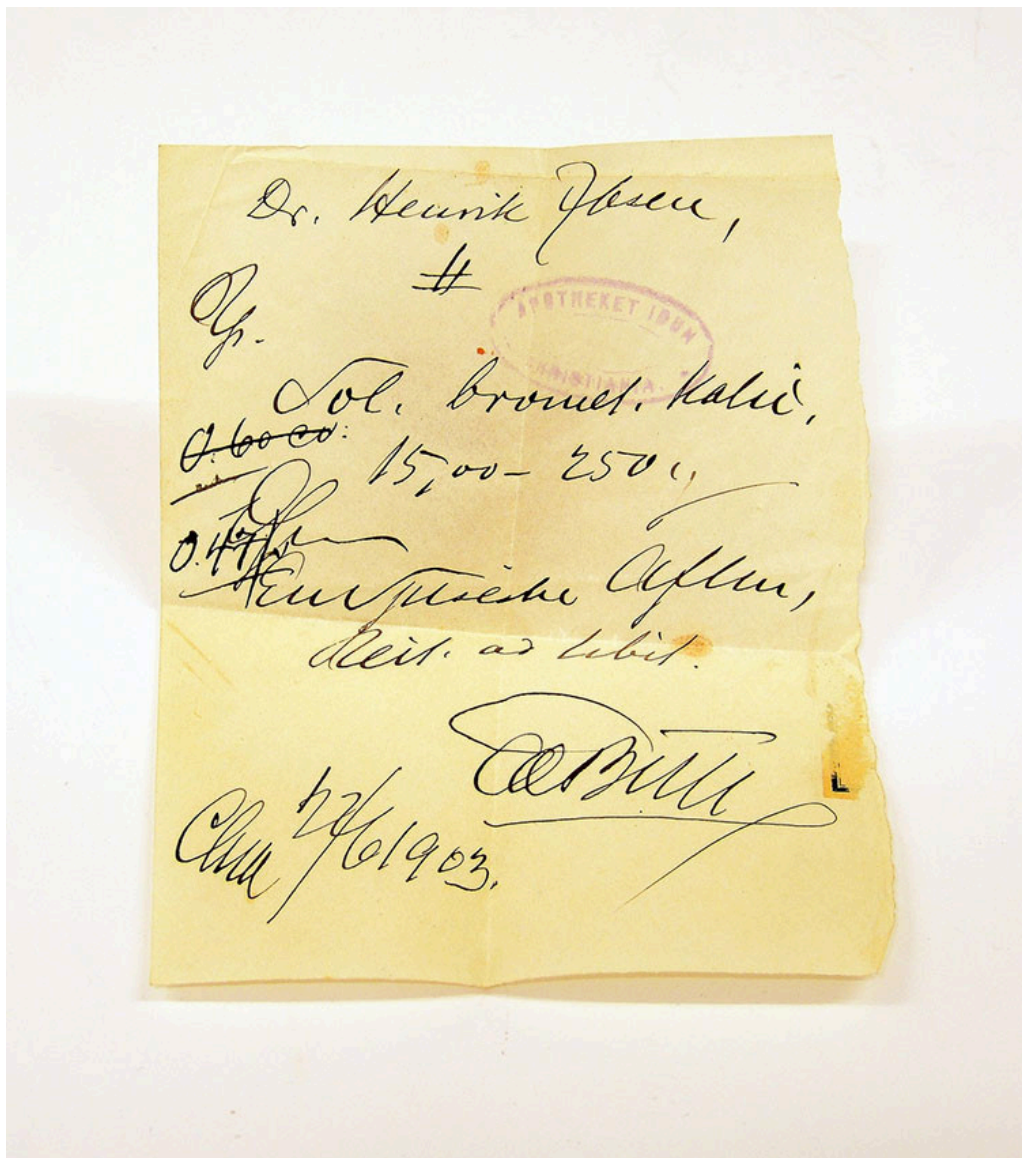 Dr. Henrik Ibsen,
#
APOTHEKET IDUN
CHRISTIANIA.
Rp.
Sol. bromet. kalic.
0.60
15,00 – 250
0.47
Aften,
Reit. ad libit.
EdBull
Chra 12/6 1903.